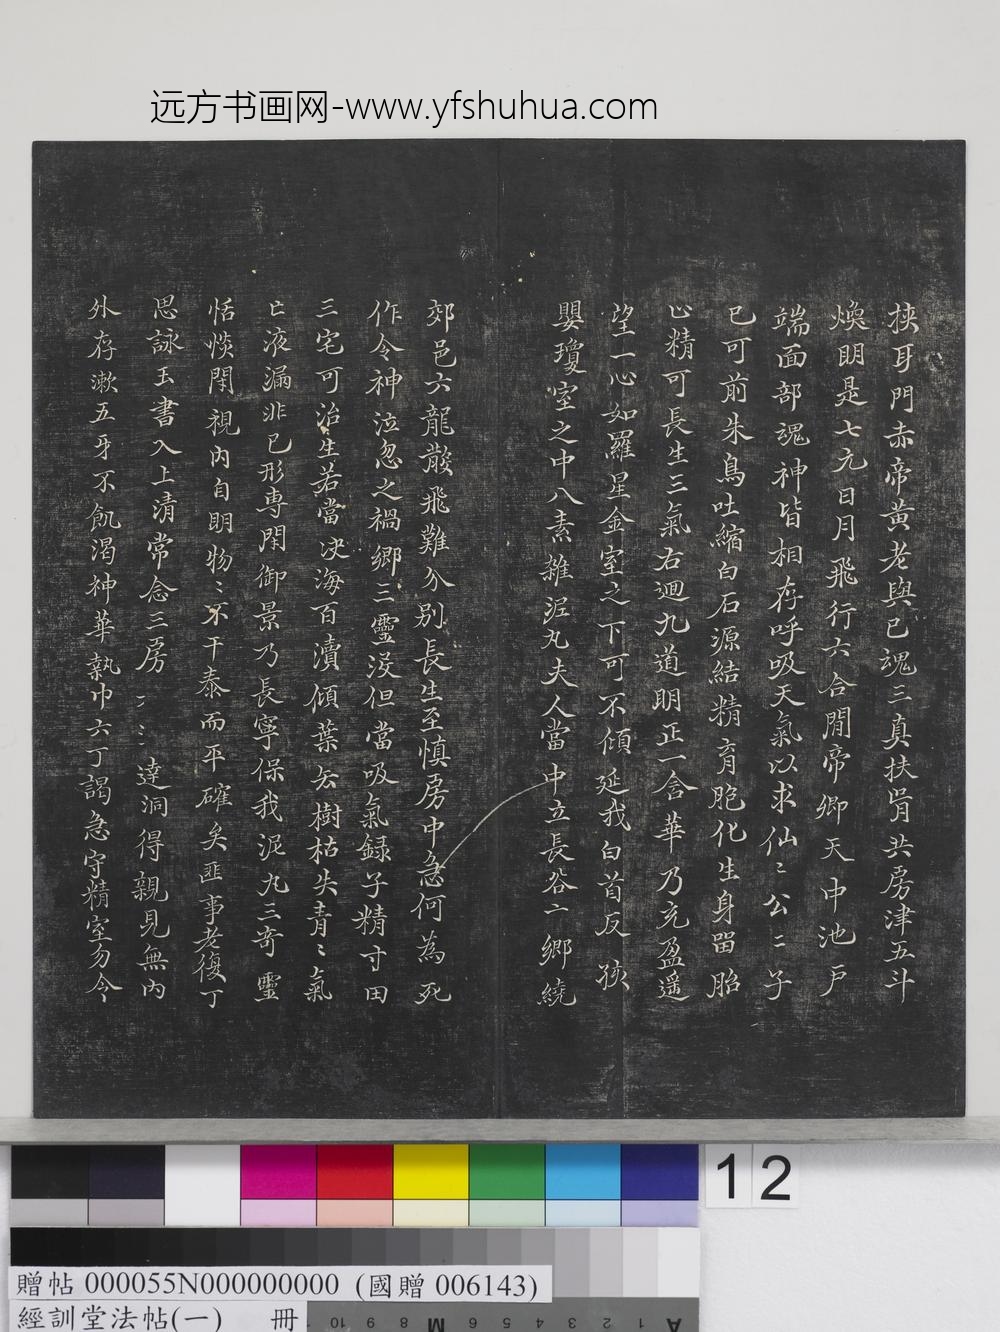 远方书画网-www.yfshuhua.com
挾耳門赤帝黃老與己魂三真扶胥共房津五斗
煥明是七元日月飛行六合間帝卿天中池户
端面部魂神皆相存呼吸天氣以求仙〻公〻子
已可前朱鳥吐縮白石源結精育胞化生身留胎
止精可長生三氣右迴九道明正一含華乃充盈遥
望一心如羅星金室之下可不傾延我白首反孩
嬰瓊室之中八素雜泥丸夫人當中立長谷二鄉繞
郊邑六龍散飛難分别長生至慎房中急何為死
作令神泣忽之禍鄉三靈没但當吸氣録子精寸田
三宅可治生若當决海百瀆傾葉去樹枯失青〻氣
亡液漏非已形専閉御景乃長寧保我泥丸三奇靈
恬惔閑視内自明物〻不干泰而平確矣匪事老復丁
思詠玉書入上清常念三房〻〻達洞得親見無内
外存漱五牙不飢渴神華執巾六丁謁急守精室勿令
12
贈帖 000055N000000000 (國贈 006143)
經訓堂法帖(一) 冊
A 1 2 3 4 5 6 M 8 9 10